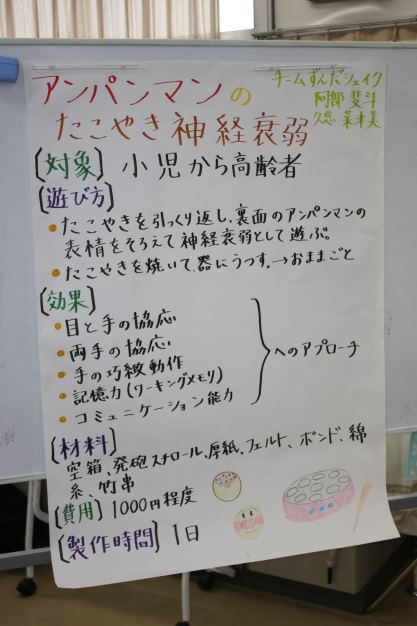 アンパンマンの
たこやき神経衰弱
チームずんだシェイク
阿部 斐斗
[対象] 小児から高齢者
[遊び方]
・たこやきを引っくり返し、裏面のアンパンマンの
表情をそろえて神経衰弱として遊ぶ。
・たこやきを焼いて、器にうつす。→おままごと
[効果]
・目と手の協応
・両手の協応
・手の巧緻動作
・記憶力(ワーキングメモリ)
・コミュニケーション能力
へのアプローチ
[材料]
空箱、発砲スチロール、厚紙、フェルト、ボンド、綿
糸、竹串
[費用] 1000円程度
[製作時間] 1日